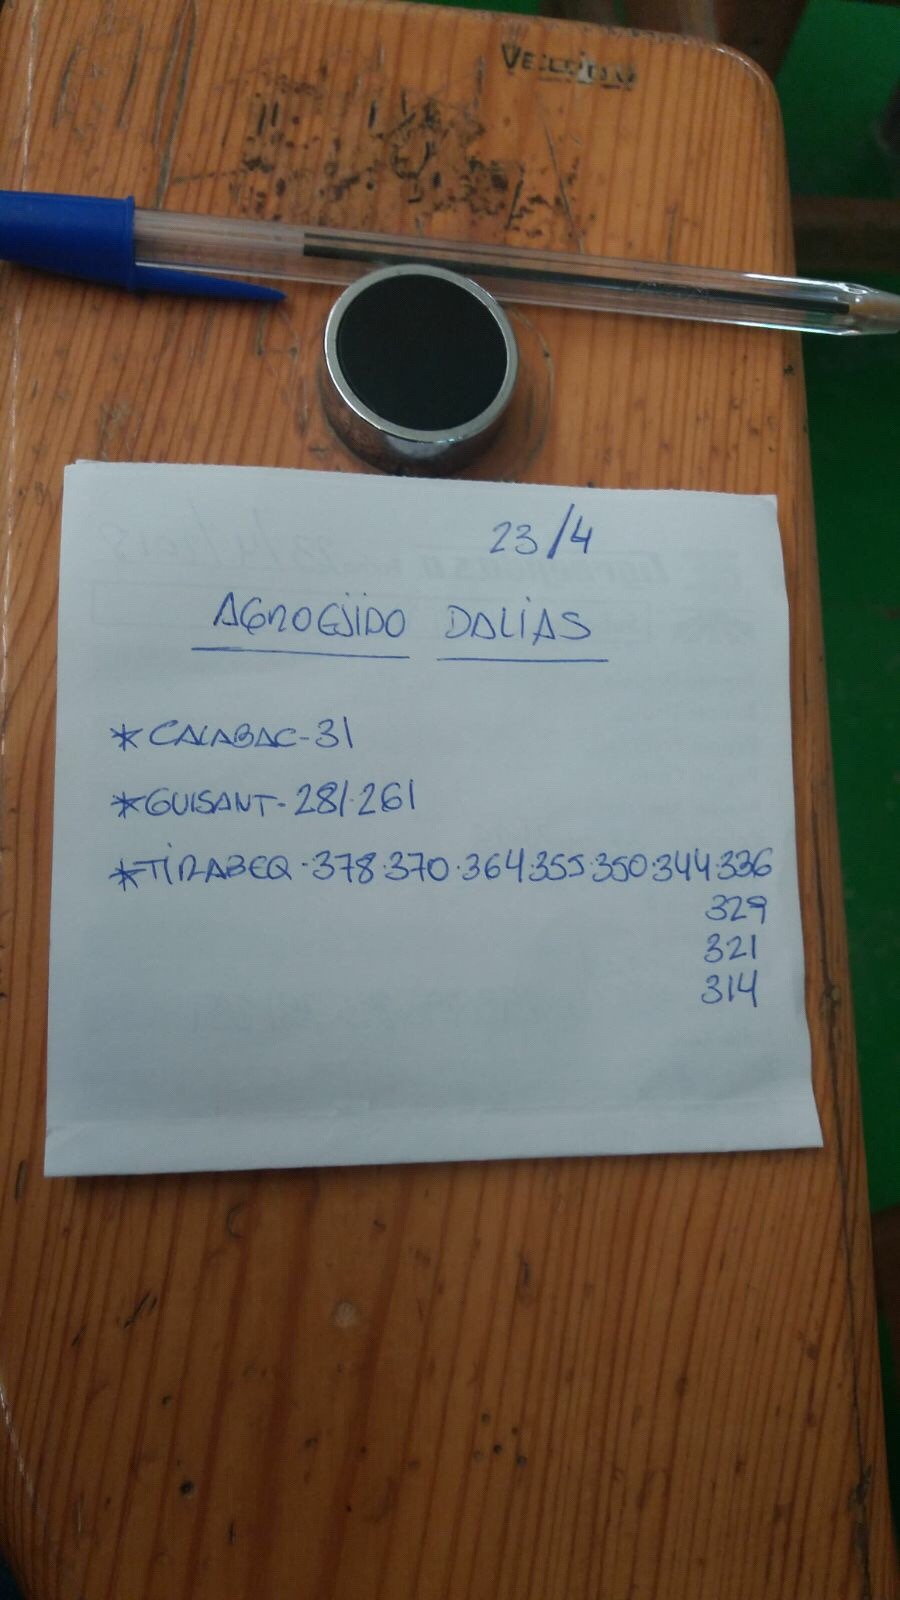 23/4
AGROEJIDO DALIAS
*CALABAC-31
*GUISANT-281.261
*TIRABEQ-378.370.364.355.350.344.336
329
321
314